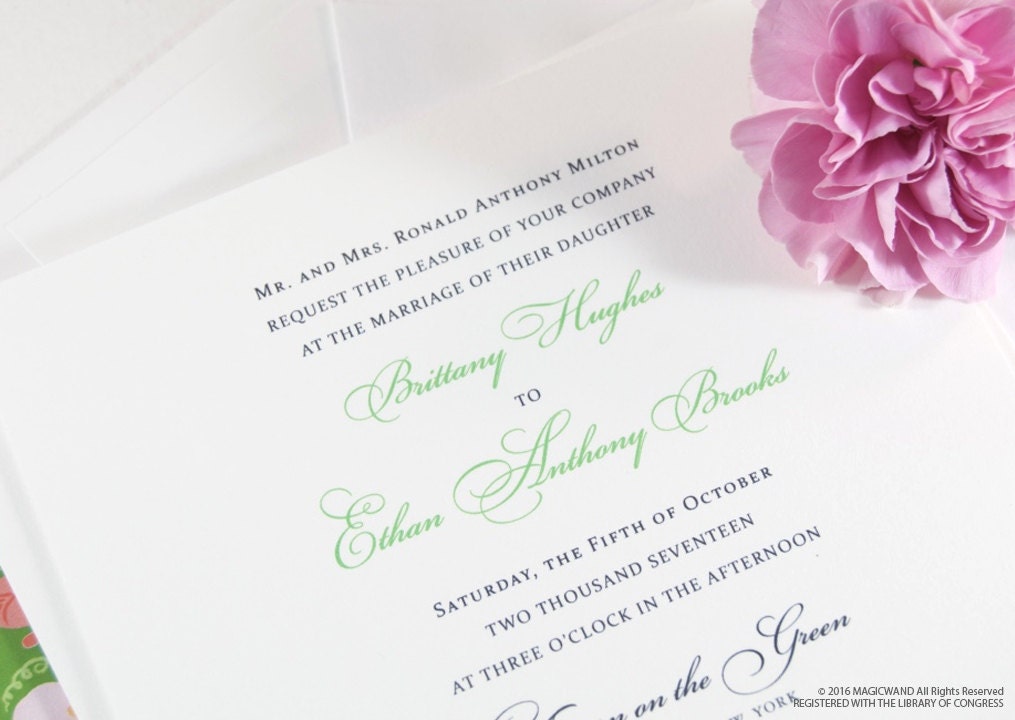 Mr. and Mrs. Ronald Anthony Milton
request the pleasure of your company
at the marriage of their daughter
Brittany Hughes
to
Ethan Anthony Brooks
Saturday, the Fifth of October
two thousand seventeen
at three o'clock in the afternoon
on the Green
York
© 2016 MAGICWAND All Rights Reserved
REGISTERED WITH THE LIBRARY OF CONGRESS